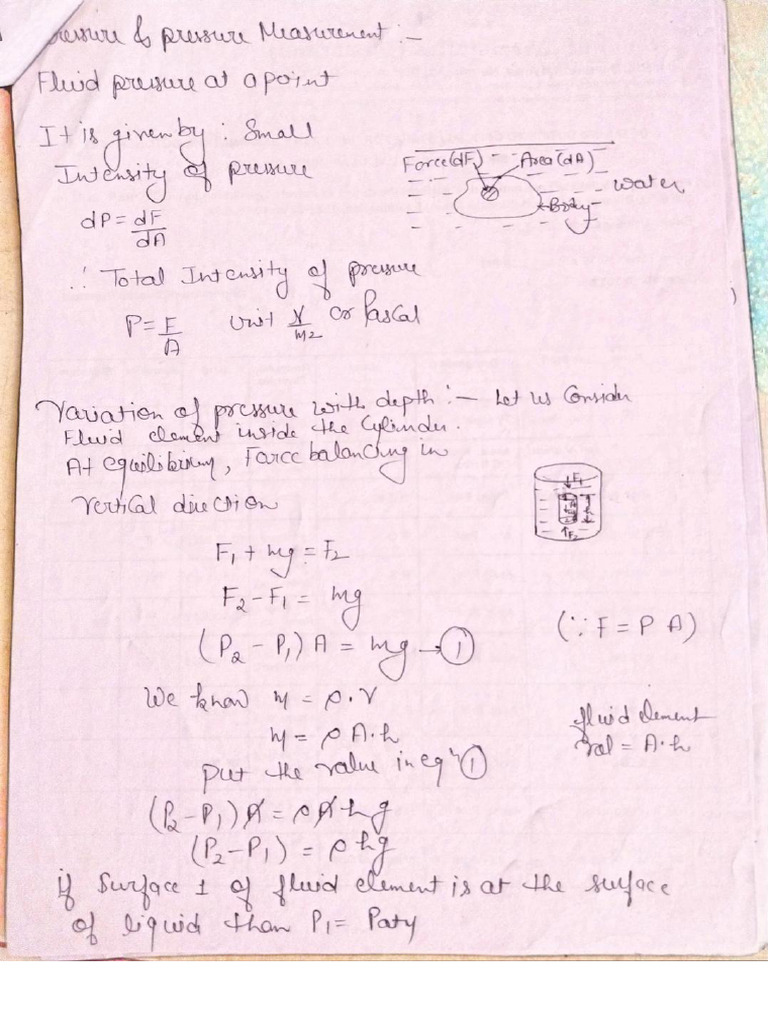 pressure & pressure Measurement :-
Fluid pressure at a point
It is given by : Small
Intensity of pressure
dP = dF
dA
Force (dF) Area (dA)
water
Body
∴ Total Intensity of pressure
P = F
A
Unit N/m2 or Pascal
Variation of pressure with depth :- Let us Consider
Fluid element inside the Cylinder.
At equilibrium, Force balancing in
Vertical direction
F1
F2
F1 + mg = F2
F2 - F1 = mg
(P2 - P1) A = mg → ① (∵ F = P A)
We know m = ρ.V
m = ρ A.h
fluid element
Vol = A.h
put the value in eqn ①
(P2 - P1) A = ρ A h g
(P2 - P1) = ρ h g
if Surface 1 of fluid element is at the surface
of liquid than P1 = Paty